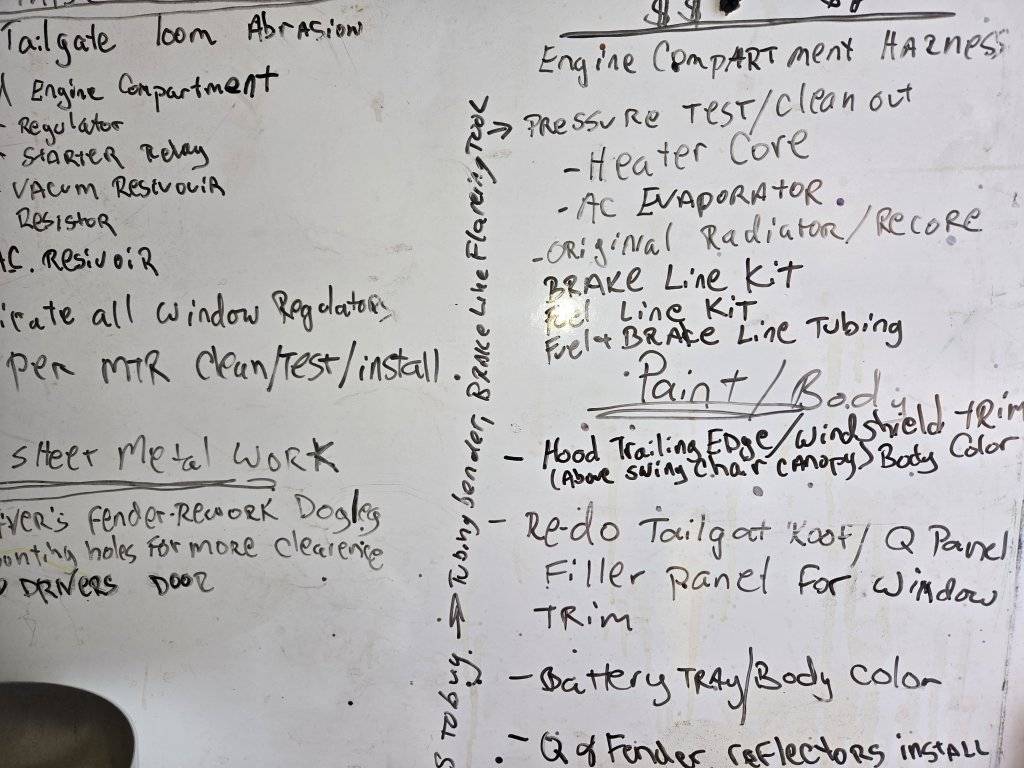 Tailgate loom Abrasion
Engine Compartment
- Regulator
- STARTER Relay
- VACUM RESIVOUIR
RESISTOR
RESIVOIR
all window Regulators
per MTR Clean/Test/install
SHEET Metal WORK
Fender-Rework Dogleg
holes for more Clearence
DRIVERS DOOR
TO BUY. → Tubing bender, BRAKE Line Flareing TOOL
$$ $
Engine CompARTment HARNESS
→ PRESSURE TEST/Clean out
- Heater Core
- AC EVAPORATOR
- ORIGINAL Radiator/RECORE
BRAKE Line KiT
Fuel Line KiT
Fuel + BRAKE Line Tubing
Paint/Body
- Hood Trailing EDGE/Windshield TRIM
(Above swing Chair CANOPY) Body Color
- Re-do Tailgat Roof/Q Panel
Filler panel For window
TRim
- Battery TRAY/Body Color
- Q & Fender reflectors install